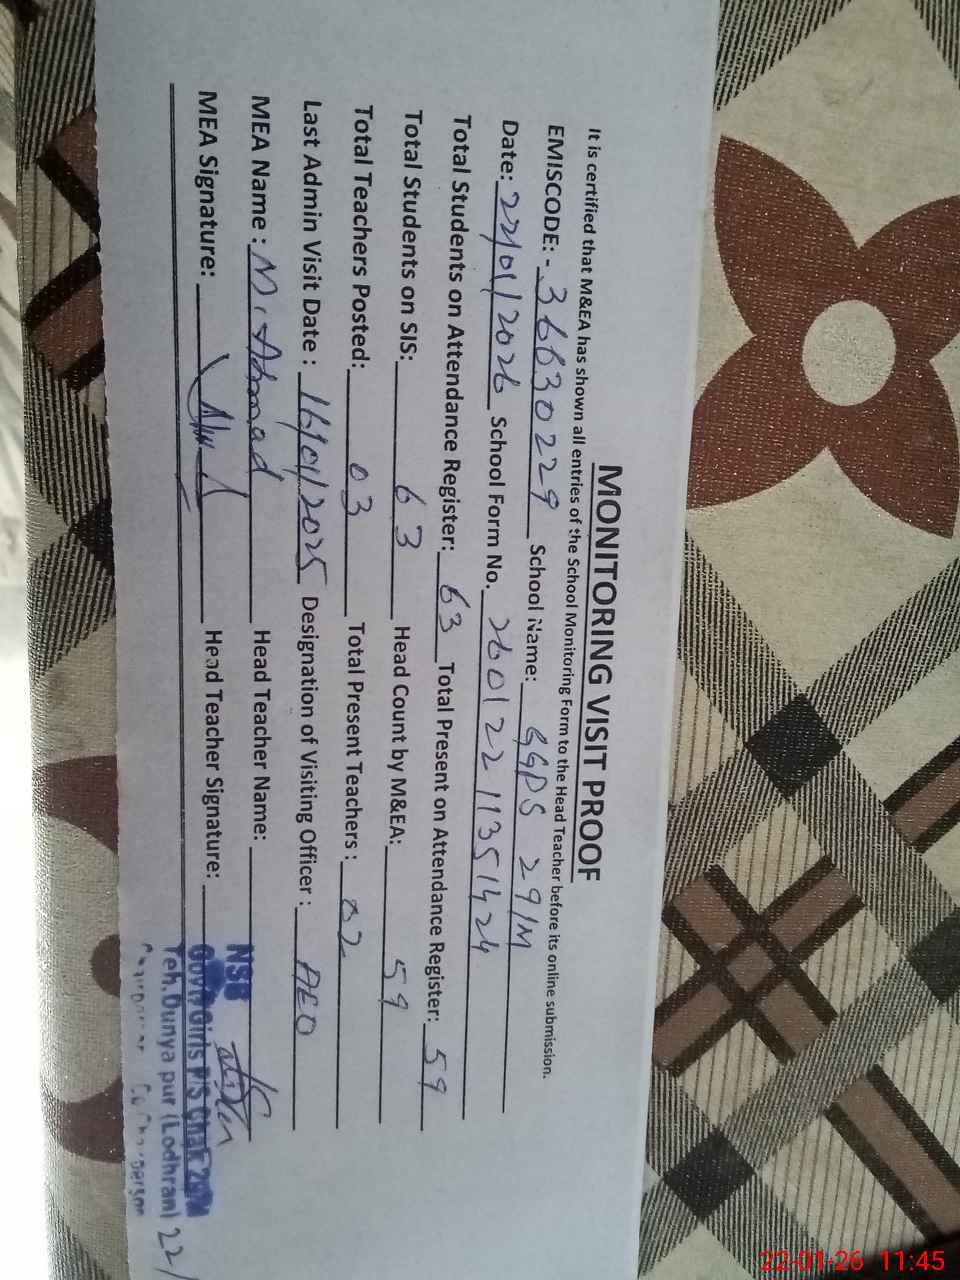 MONITORING VISIT PROOF
It is certified that M&EA has shown all entries of the School Monitoring Form to the Head Teacher before its online submission.
EMISCODE: - 36630229 School Name: GGPS 29/M
Date: 22/01/2026 School Form No. 26012211351424
Total Students on Attendance Register: 63 Total Present on Attendance Register: 59
Total Students on SIS: 63 Head Count by M&EA: 59
Total Teachers Posted: 03 Total Present Teachers: 02
Last Admin Visit Date : 16/01/2025 Designation of Visiting Officer : AEO
MEA Name : M. Ahmad Head Teacher Name:
MEA Signature: Head Teacher Signature:
NSB
Govt. Girls P/S Chak 29/M
Teh. Dunya pur (Lodhran)
22/
22-01-26 11:45